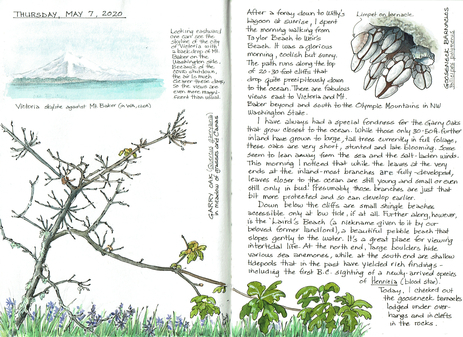 THURSDAY, MAY 7, 2020
Looking eastward
one can see the
skyline of the city
of Victoria with
a backdrop of Mt.
Baker on the
Washington side.
Because of the
covid shutdown,
the air is much
clearer these days,
so the views are
even more
than usual.
Victoria skyline against Mt Baker (in WA, USA)
GARRY OAK (Quercus garryana)
in meadow of grasses and Camas
After a foray down to Witty's
Lagoon at sunrise, I spent
the morning walking from
Taylor Beach to
Beach. It was a glorious
morning, coolish but sunny.
The path runs along the top
of 20-30 foot cliffs that
drop quite precipitously down
to the ocean. There are fabulous
views east to Victoria and Mt.
Baker beyond and south to the Olympic Mountains in NW
Washington State.
I have always had a special fondness for the Garry Oaks
that grow closest to the ocean. While those only 30-50 ft. further
inland have grown to large, tall trees currently in full foliage,
these oaks are very short, stunted and late blooming. Some
seem to lean away from the sea and the salt-laden winds.
This morning I noticed that while the leaves at the very
ends at the inland-most branches are fully-developed,
leaves closer to the ocean are still young and small or even
still only in bud! Presumably those branches are just that
bit more protected and so can develop earlier.
Down below the cliffs are small shingle beaches
accessible only at low tide, if at all. Further along, however,
is the "Laird's Beach (a nickname given to it by our
beloved former landlord), a beautiful pebble beach that
slopes gently to the water. It's a great place for viewing
intertidal life. At the north end, large boulders hide
various sea anemones, while at the south end are shallow
tidepools that in the past have yielded rich findings -
including the first B.C. sighting of a newly-arrived species
of Henricia (blood star).
Today, I checked out
the gooseneck barnacles
lodged under over-
hangs and in clefts
in the rocks.
Limpet on barnacle
GOOSENECK BARNACLES
Pollicipes polymerus